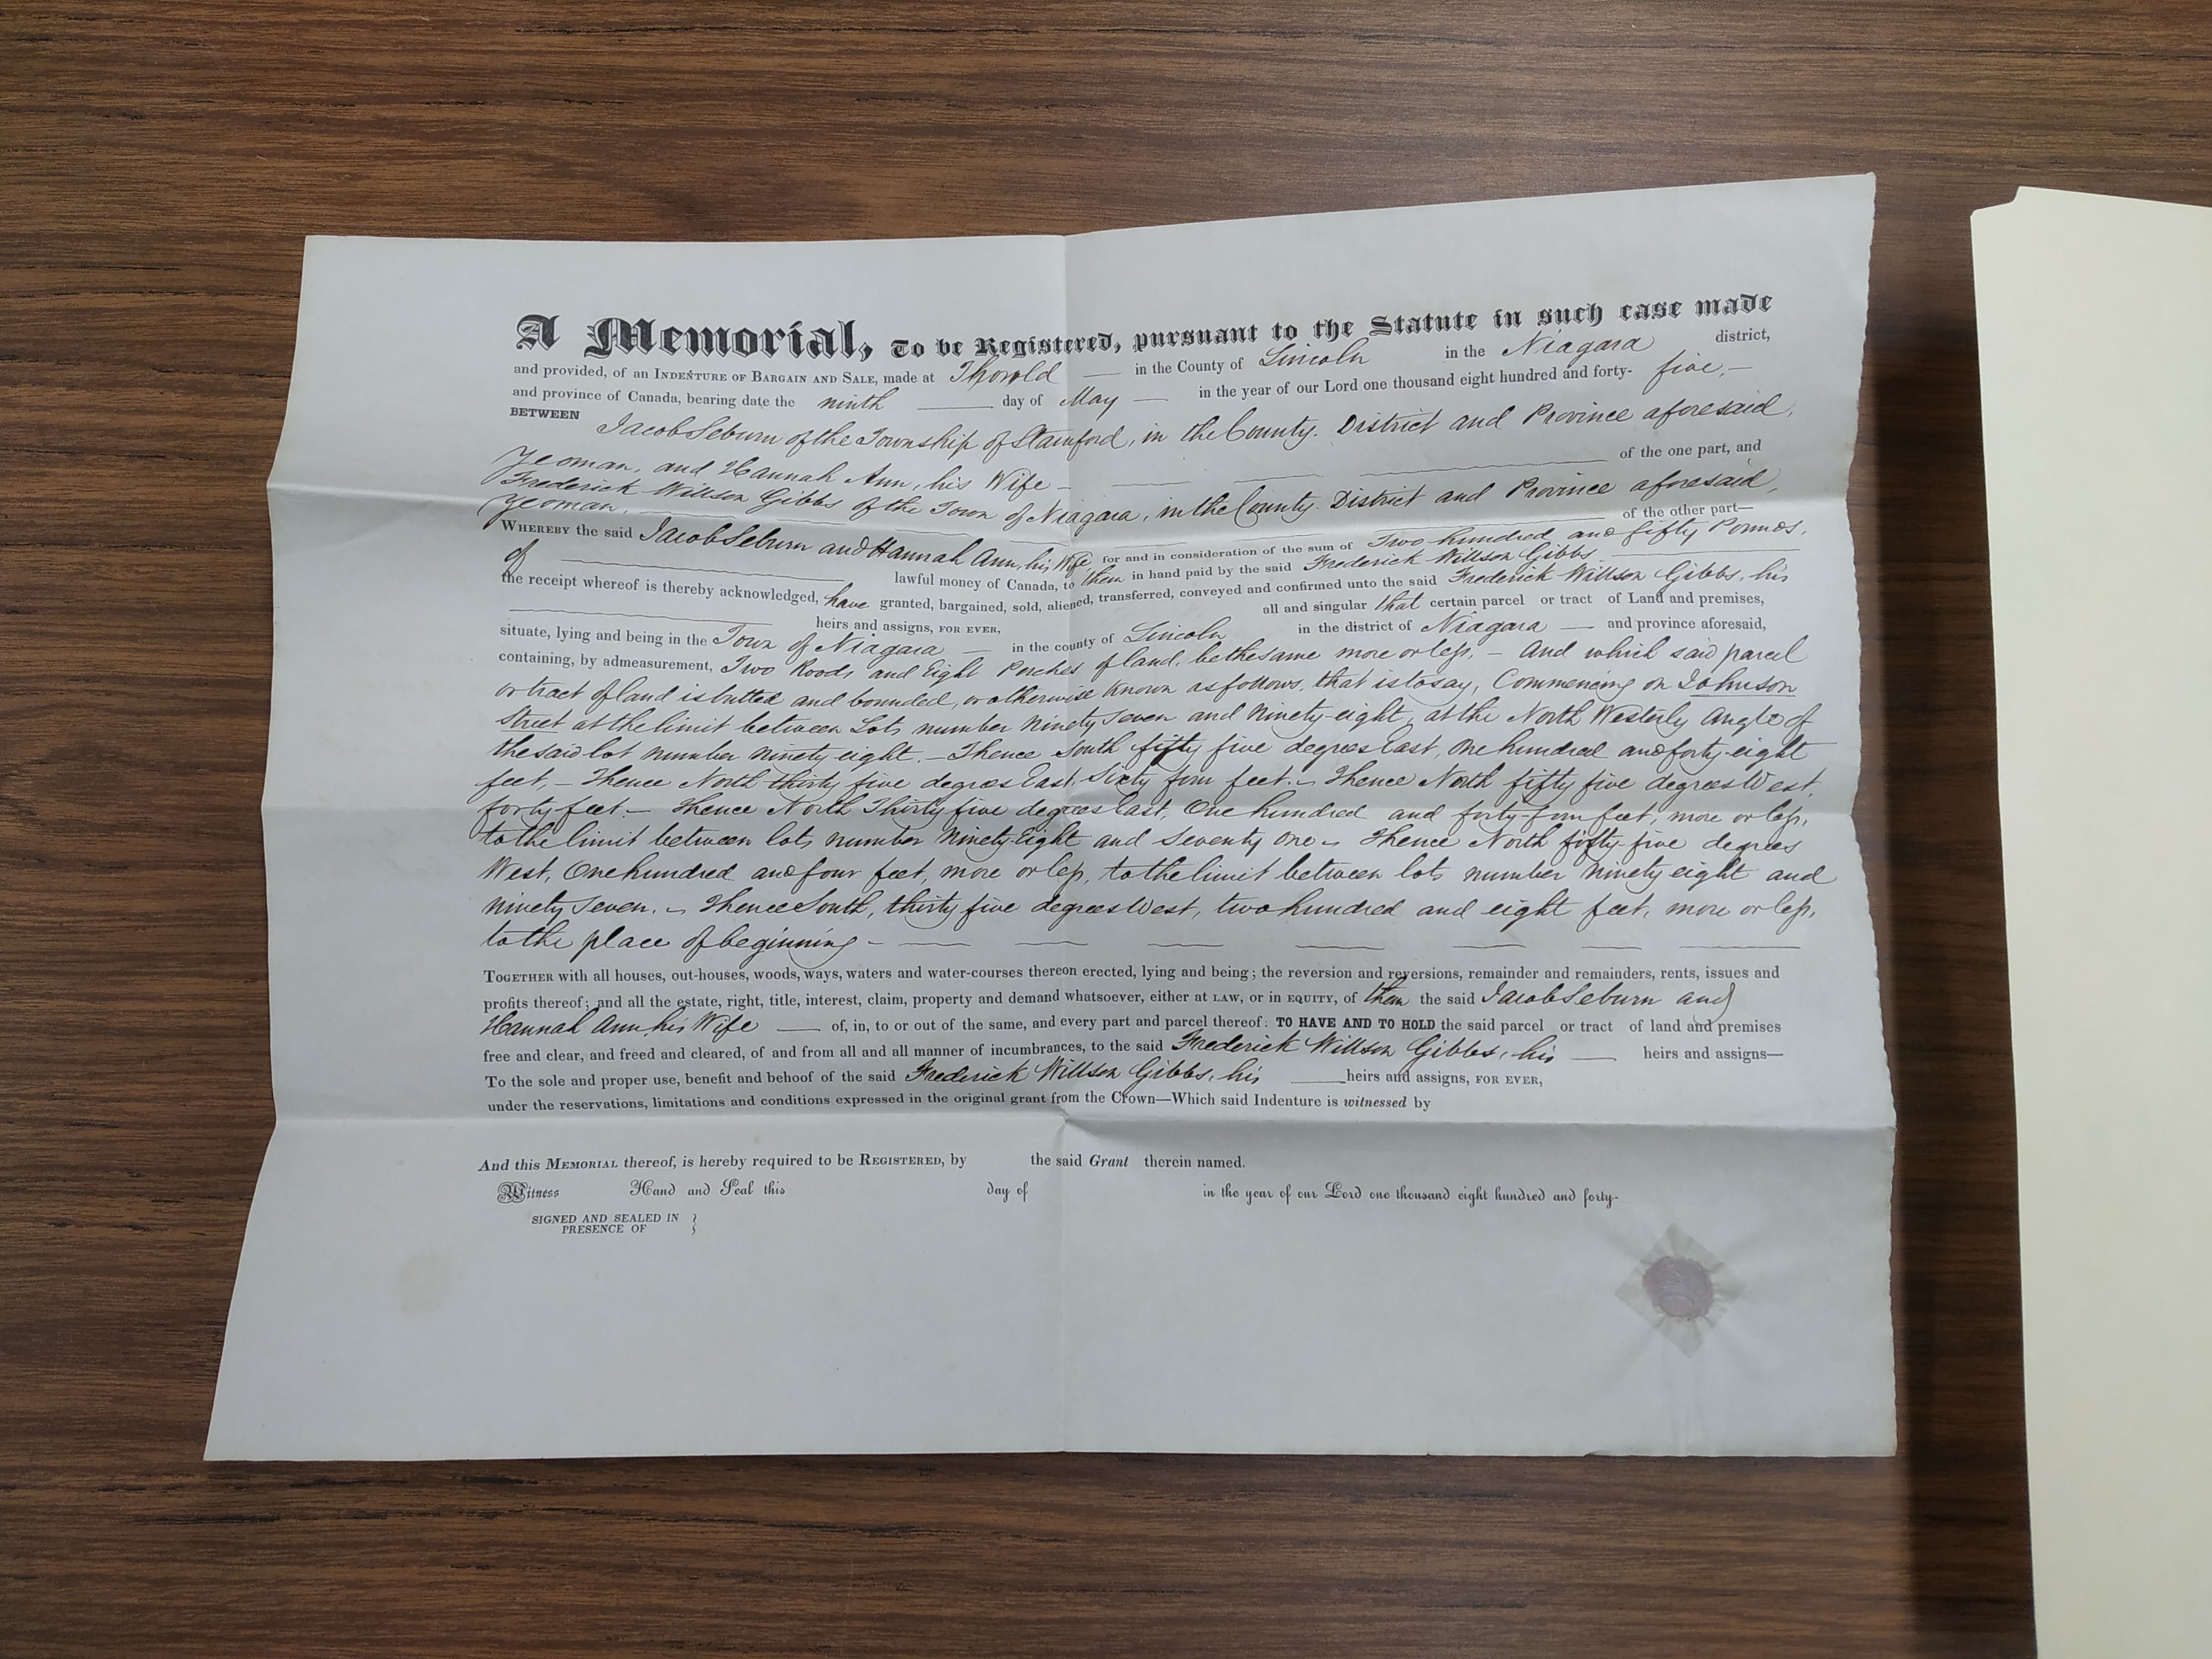 A Memorial, To be Registered, pursuant to the Statute in such case made
and provided, of an INDENTURE OF BARGAIN AND SALE, made at Thorold — in the County of Lincoln in the Niagara district,
and province of Canada, bearing date the ninth — day of May — in the year of our Lord one thousand eight hundred and forty-five,—
BETWEEN Jacob of the Township of Stamford, in the County, District and Province aforesaid,
Yeoman, and Hannah Ann, his Wife — of the one part, and
Frederick Willson Gibbs of the Town of Niagara, in the County, District and Province aforesaid,
Yeoman, of the other part—
WHEREBY the said Jacob and Hannah Ann, his Wife, for and in consideration of the sum of Two hundred and fifty Pounds,
of lawful money of Canada, to them in hand paid by the said Frederick Willson Gibbs,
the receipt whereof is thereby acknowledged, have granted, bargained, sold, aliened, transferred, conveyed and confirmed unto the said Frederick Willson Gibbs, his
heirs and assigns, FOR EVER, all and singular that certain parcel or tract of Land and premises,
situate, lying and being in the Town of Niagara — in the county of Lincoln in the district of Niagara — and province aforesaid,
containing, by admeasurement, Two Roods and Eight Perches of land, be the same more or less, — and which said parcel
or tract of land is butted and bounded, or otherwise known as follows, that is to say, Commencing on Johnson
Street at the limit between Lots number Ninety Seven and Ninety-eight, at the North Westerly Angle of
the said lot number Ninety-eight, — Thence South fifty five degrees East, One hundred and forty-eight
feet, — Thence North thirty five degrees East, Sixty four feet. — Thence North fifty five degrees West,
forty feet. — Thence North Thirty five degrees East, One hundred and forty-four feet, more or less,
to the limit between lots number Ninety-Eight and Seventy One — Thence North fifty-five degrees
West, One hundred and four feet, more or less, to the limit between lots number Ninety eight and
Ninety Seven. — Thence South, thirty five degrees West, two hundred and eight feet, more or less,
to the place of beginning —
TOGETHER with all houses, out-houses, woods, ways, waters and water-courses thereon erected, lying and being; the reversion and reversions, remainder and remainders, rents, issues and
profits thereof; and all the estate, right, title, interest, claim, property and demand whatsoever, either at LAW, or in EQUITY, of them the said Jacob and
Hannah Ann, his Wife — of, in, to or out of the same, and every part and parcel thereof: TO HAVE AND TO HOLD the said parcel or tract of land and premises
free and clear, and freed and cleared, of and from all and all manner of incumbrances, to the said Frederick Willson Gibbs, his — heirs and assigns—
To the sole and proper use, benefit and behoof of the said Frederick Willson Gibbs, his — heirs and assigns, FOR EVER,
under the reservations, limitations and conditions expressed in the original grant from the Crown—Which said Indenture is witnessed by
And this MEMORIAL thereof, is hereby required to be REGISTERED, by the said Grant therein named.
Witness Hand and Seal this day of in the year of our Lord one thousand eight hundred and forty-
SIGNED AND SEALED IN }
PRESENCE OF }